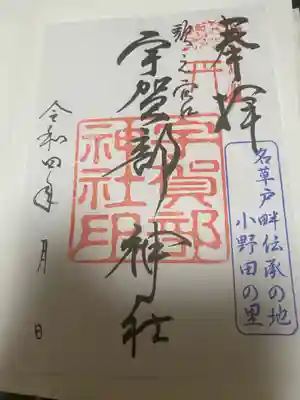 奉拝
宇賀部神社
宇賀部
神社印
名草戸畔伝承の地
小野田の里
令和四年 月 日